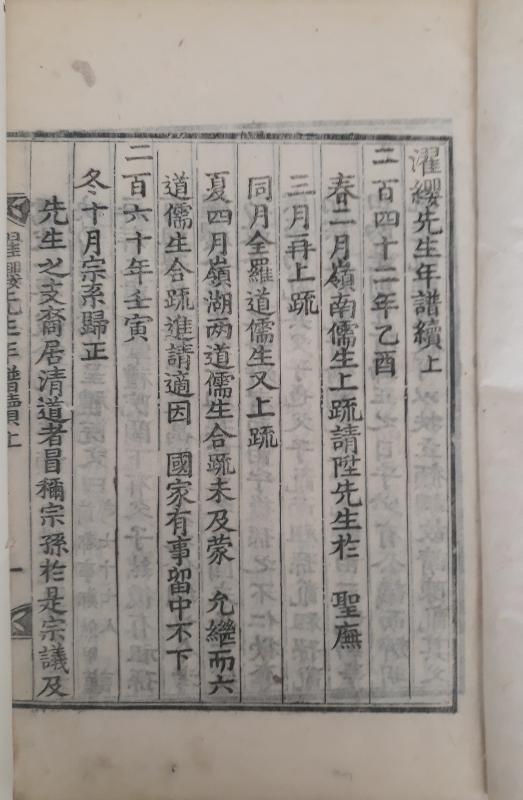 濯纓先生年譜續上
二百四十二年乙酉
春二月嶺南儒生上疏請陞先生於 聖廡
三月再上疏
同月全羅道儒生又上疏
夏四月嶺湖兩道儒生合疏未及蒙 允繼而六
道儒生合疏進請適因 國家有事留中不下
二百六十年壬寅
冬十月宗系歸正
先生之支裔居清道者冒稱宗孫於是宗議及
濯纓先生年譜續上 一